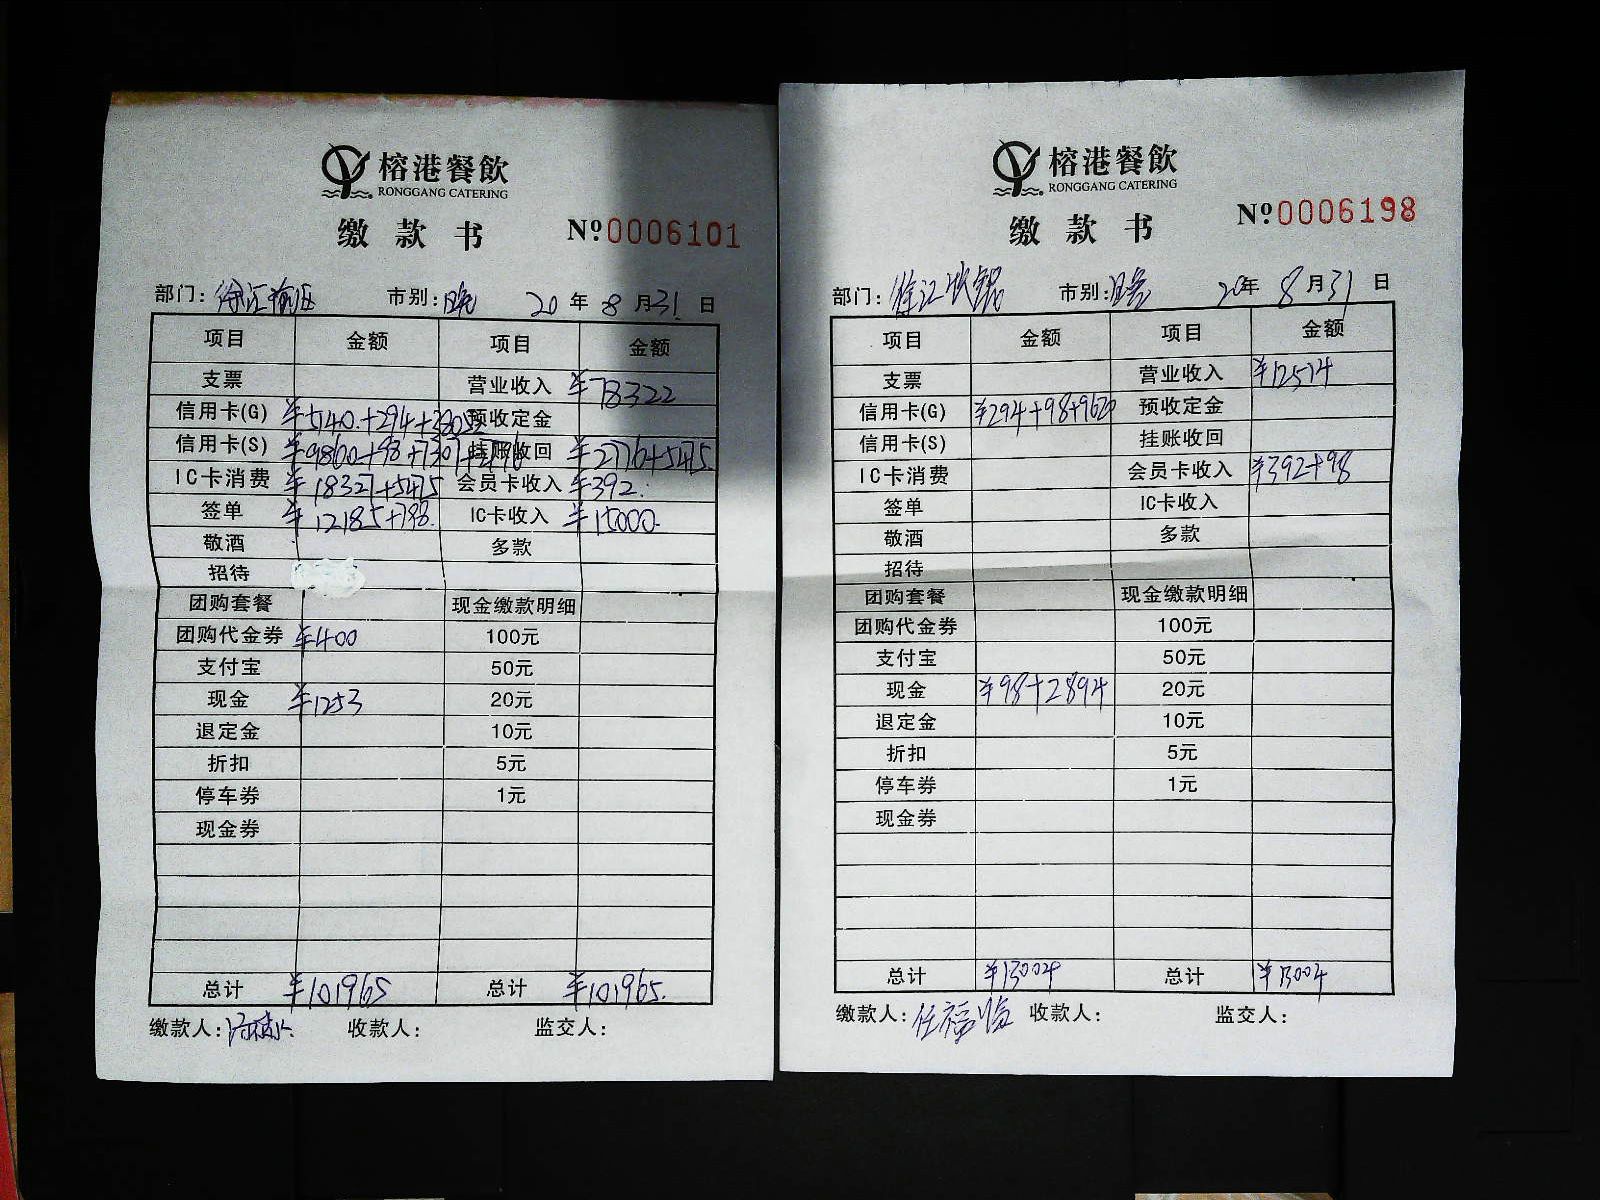 榕港餐飲
RONGGANG CATERING
缴款书 Nº0006101
部门: 徐汇前区 市别: 晚 20年8月31日
项目 金额 项目 金额
支票 营业收入 ¥78322
信用卡(G) ¥5140.+294+38058 预收定金
信用卡(S) ¥9860+98+7301+2776 挂账收回 ¥2776+5475
IC卡消费 ¥18327+5475 会员卡收入 ¥392.
签单 ¥12185+798. IC卡收入 ¥15000.
敬酒 多款
招待
团购套餐 现金缴款明细
团购代金券 ¥400 100元
支付宝 50元
现金 ¥1253 20元
退定金 10元
折扣 5元
停车券 1元
现金券
总计 ¥101965 总计 ¥101965.
缴款人: 收款人: 监交人:
榕港餐飲
RONGGANG CATERING
缴款书 Nº0006198
部门: 市别: 晚 20年8月31日
项目 金额 项目 金额
支票 营业收入 ¥12514
信用卡(G) ¥294+98+9620 预收定金
信用卡(S) 挂账收回
IC卡消费 会员卡收入 ¥392+98
签单 IC卡收入
敬酒 多款
招待
团购套餐 现金缴款明细
团购代金券 100元
支付宝 50元
现金 ¥98+2894 20元
退定金 10元
折扣 5元
停车券 1元
现金券
总计 ¥13004 总计 ¥13004
缴款人: 任福临 收款人: 监交人: